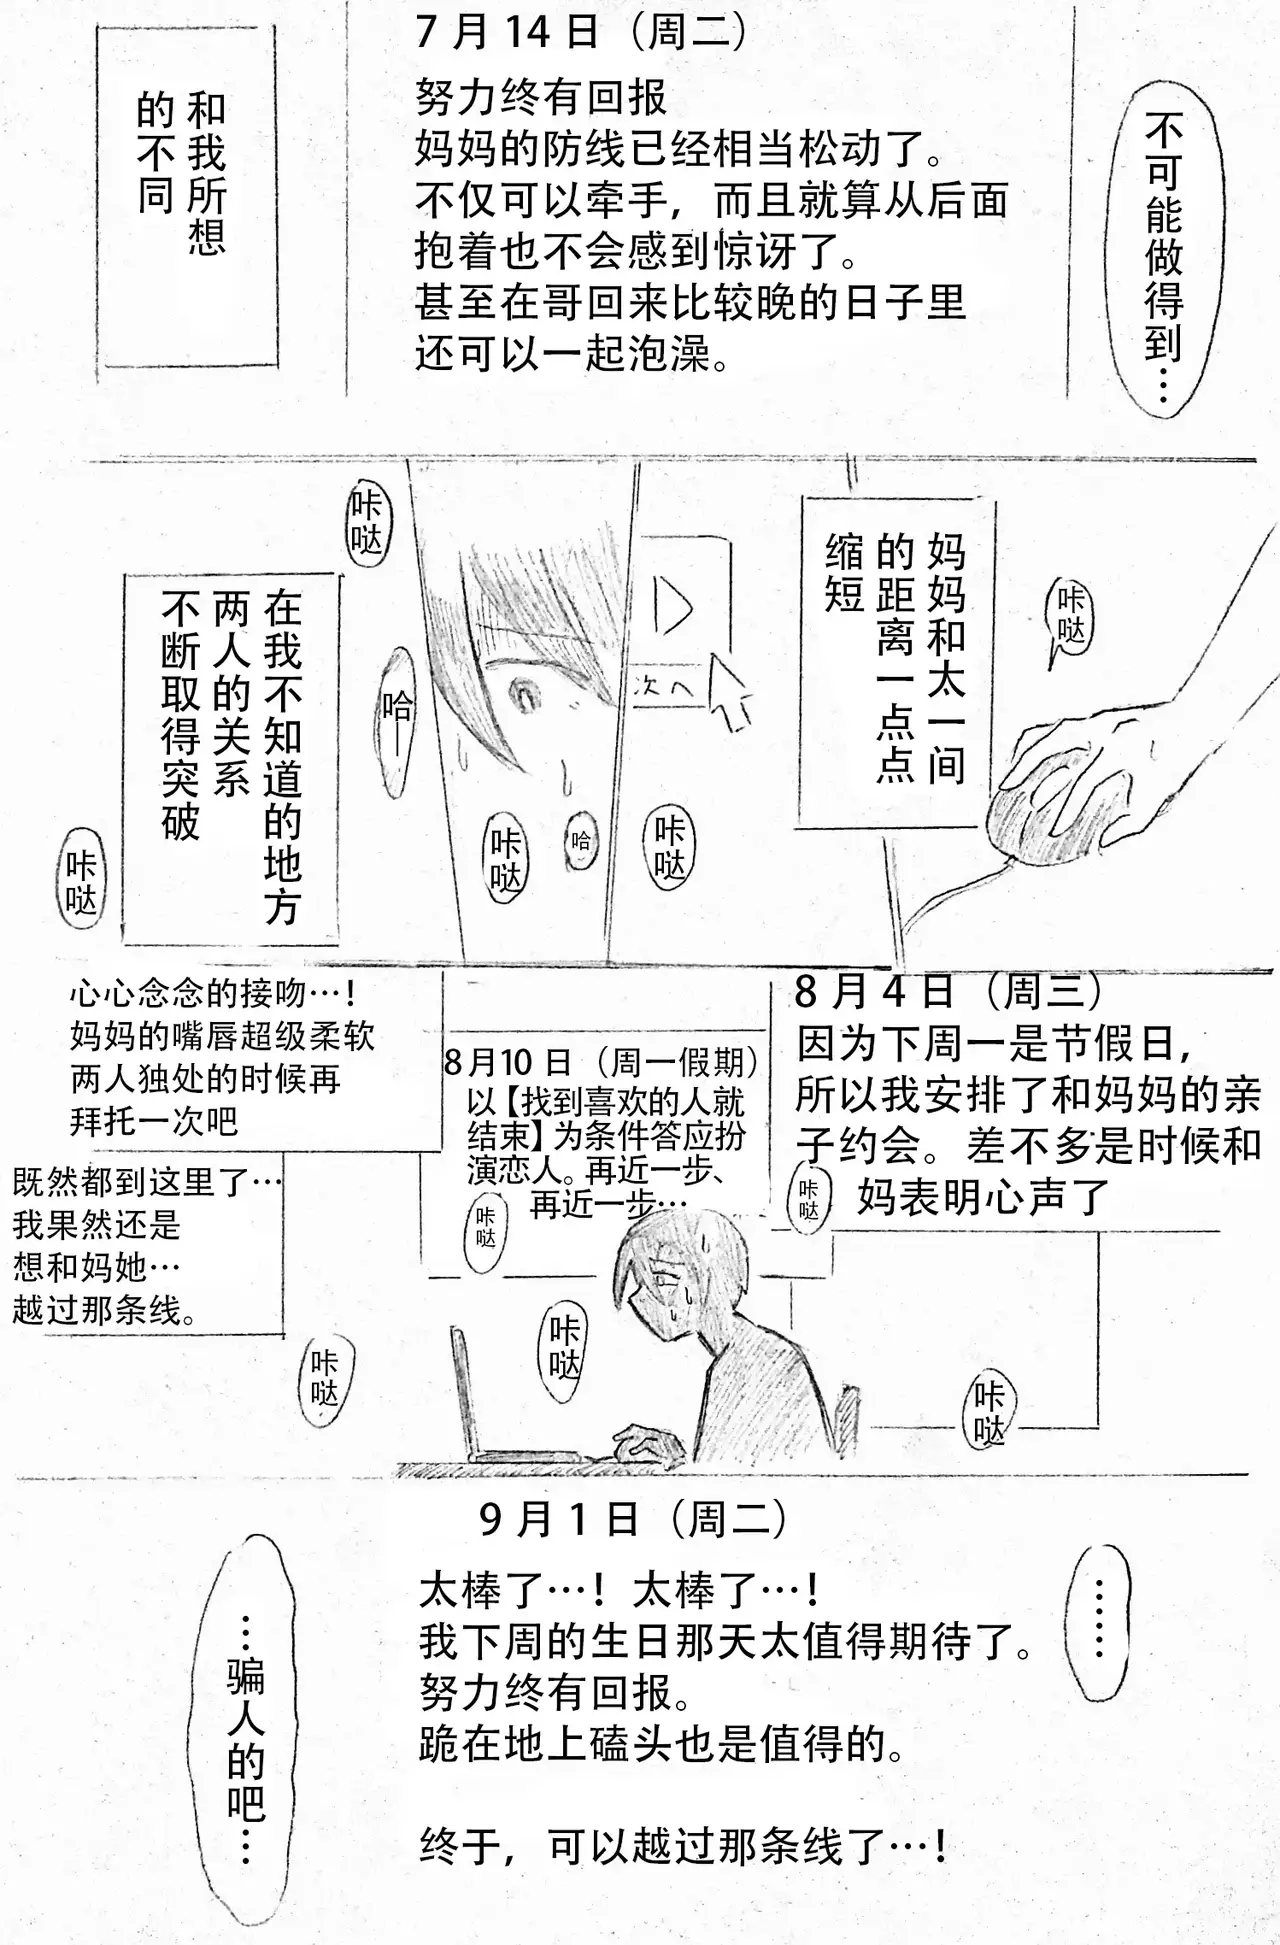 不可能做得到…
7月14日（周二）
努力终有回报
妈妈的防线已经相当松动了。
不仅可以牵手，而且就算从后面
抱着也不会感到惊讶了。
甚至在哥回来比较晚的日子里
还可以一起泡澡。
和我所想
的不同
咔哒
妈妈和太一间
的距离一点点
缩短
次へ
咔哒
咔哒
哈—
咔哒
哈
在我不知道的地方
两人的关系
不断取得突破
咔哒
8月4日（周三）
因为下周一是节假日，
所以我安排了和妈妈的亲
子约会。差不多是时候和
妈表明心声了
咔哒
8月10日（周一假期）
以【找到喜欢的人就
结束】为条件答应扮
演恋人。再近一步、
再近一步…
咔哒
心心念念的接吻…！
妈妈的嘴唇超级柔软
两人独处的时候再
拜托一次吧
既然都到这里了…
我果然还是
想和妈她…
越过那条线。
咔哒
咔哒
咔哒
9月1日（周二）
太棒了…！太棒了…！
我下周的生日那天太值得期待了。
努力终有回报。
跪在地上磕头也是值得的。
终于，可以越过那条线了…！
……
…骗人的吧…